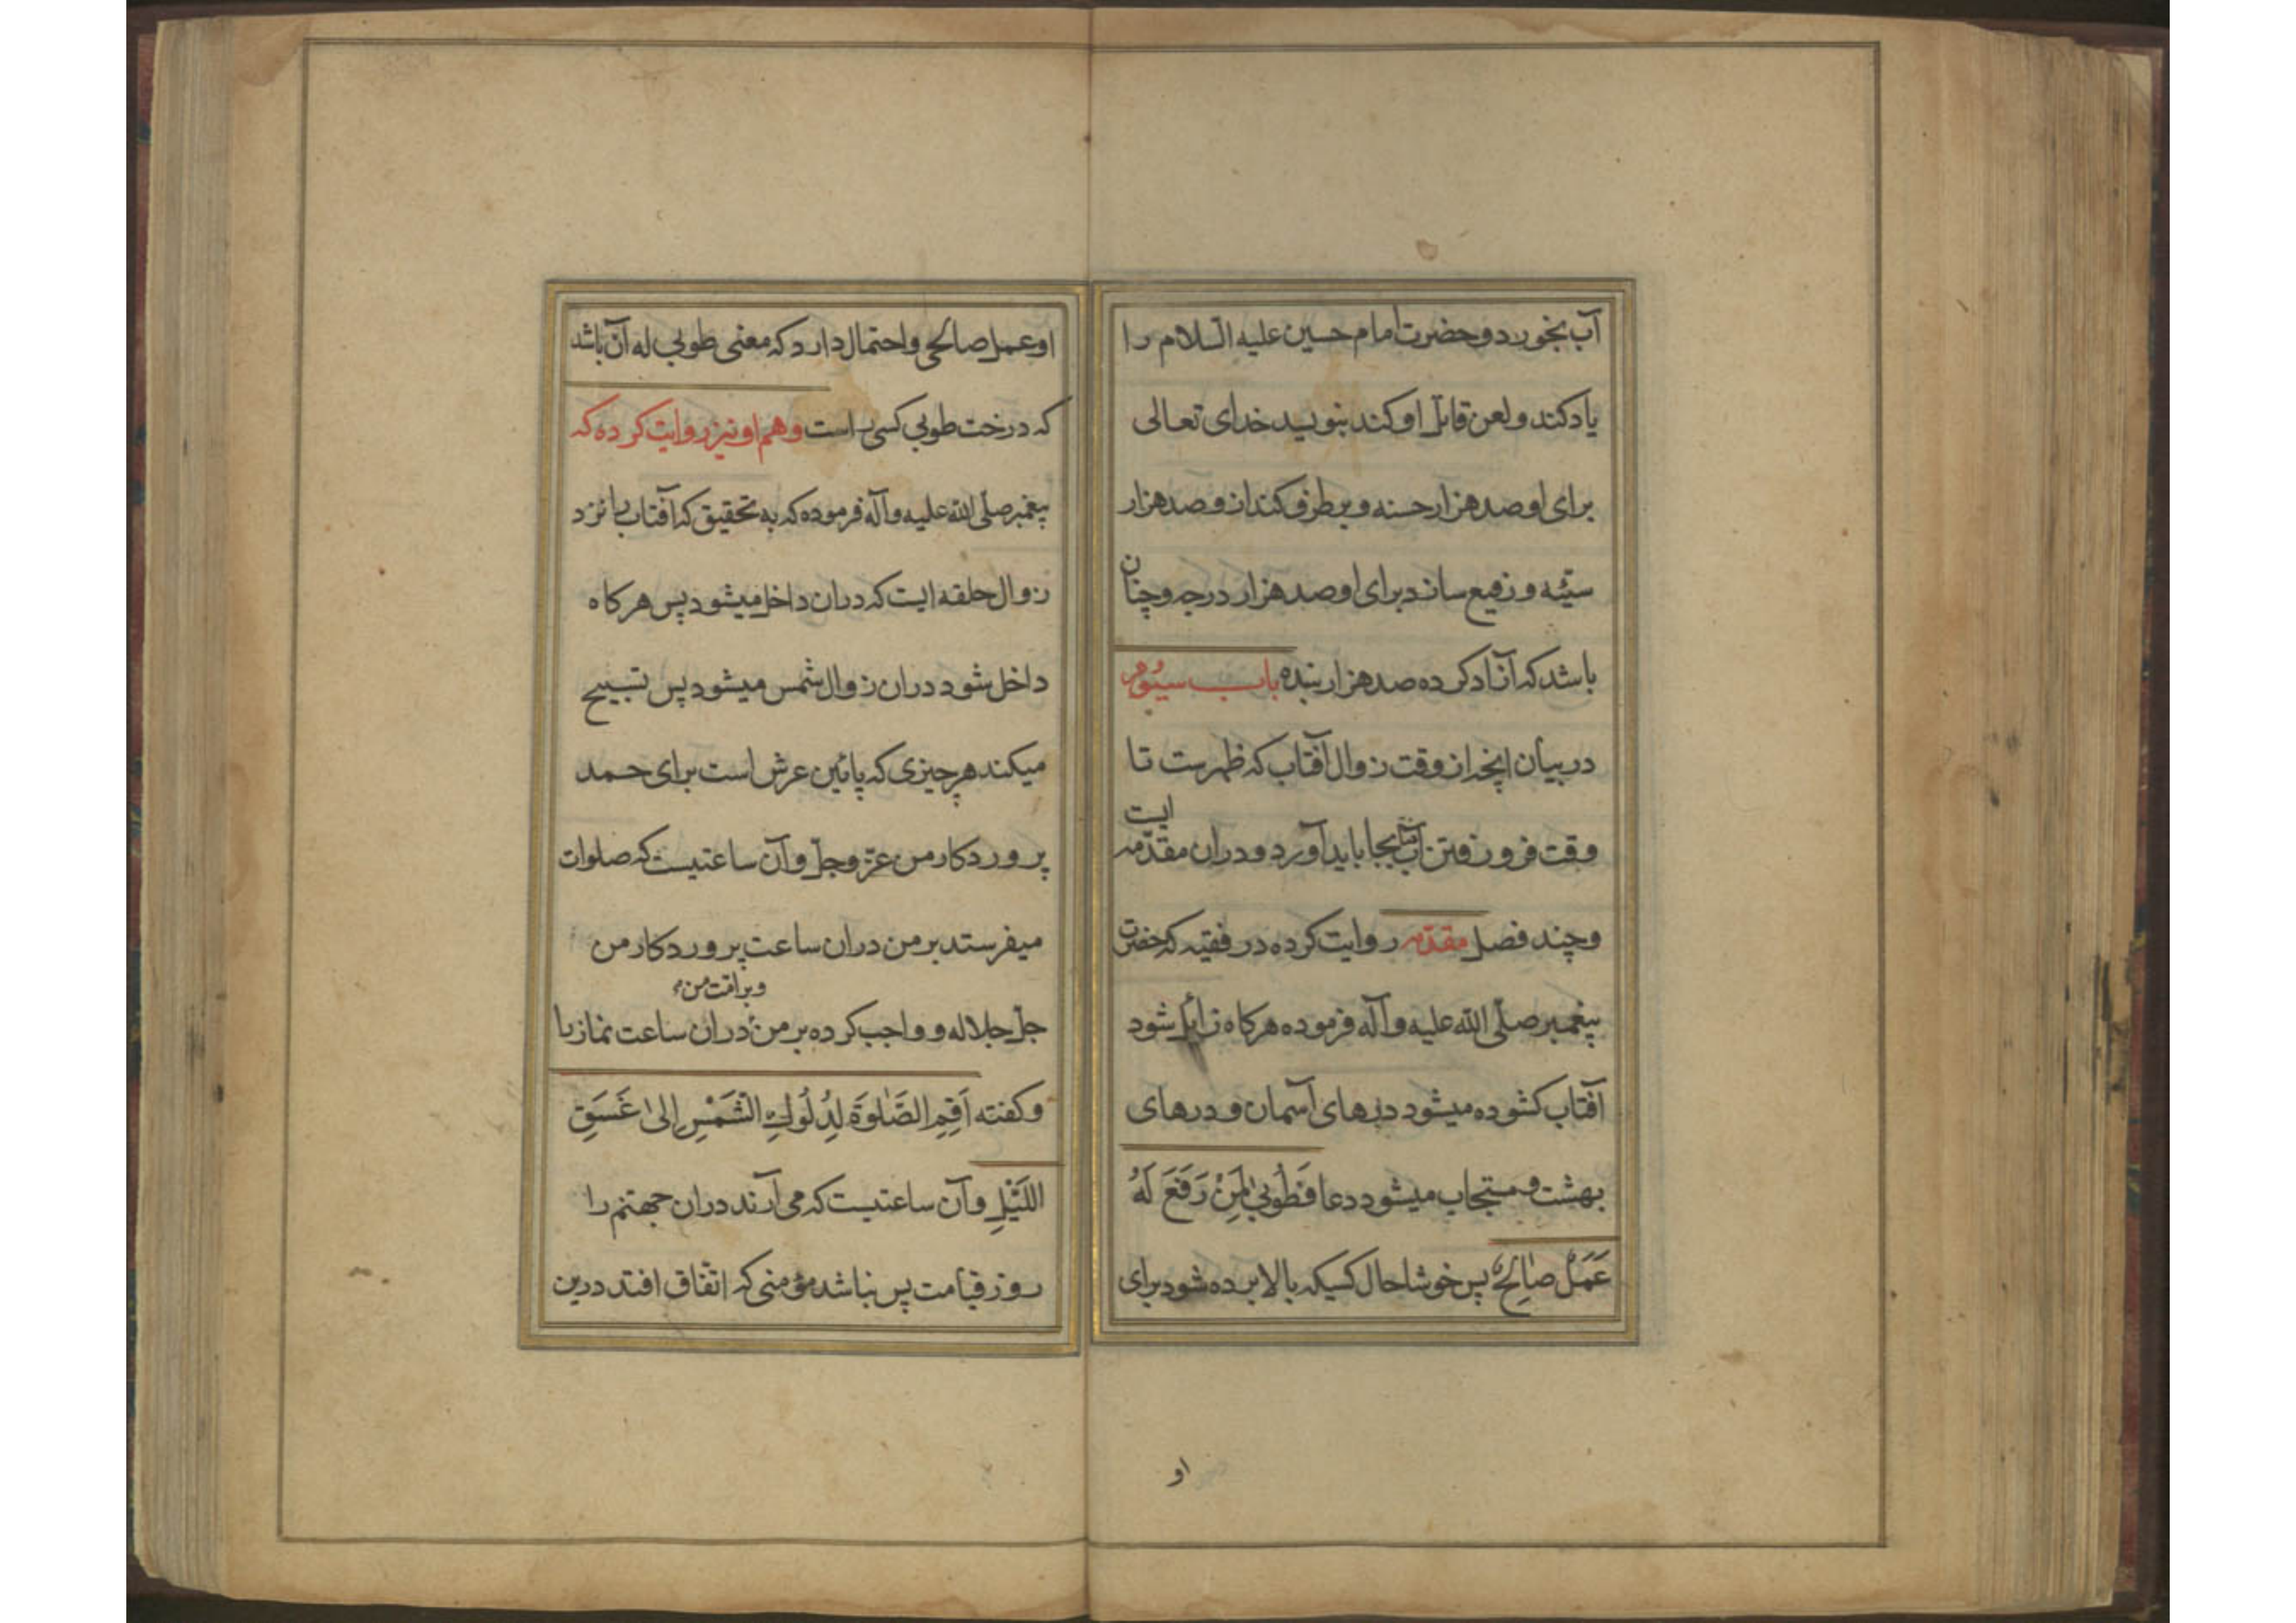 آب بخورد و حضرت امام حسین علیه السلام را
یاد کند و لعن قاتل او کند بنویسد خدای تعالی
برای او صد هزار حسنه و برطرف کند ازو صد هزار
سیّئه و رفیع ساند برای او صد هزار درجه و چنان
باشد که آزاد کرده صد هزار بنده باب سیوم
در بیان انچه از وقت زوال آفتاب که ظهرست تا
وقت فرو رفتن آفتاب بجا باید آورد و دران مقدّمه ایست
و چند فصل مقدّمه روایت کرده در فقیه که حضرت
پیغمبر صلّی الله علیه و آله فرموده هر کاه زایل شود
آفتاب کشوده میشود درهای آسمان و درهای
بهشت و مستجاب میشود دعا فَطُوبیٰ لِمَنْ رَفَعَ لَهُ
عَمَلٌ صٰالِحٌ پس خوشا حال کسیکه بالا برده شود برای
او
او عمل صالحی و احتمال دارد که معنی طوبی له آن باشد
که درخت طوبی کسی راست و هم او نیز روایت کرده که
پیغمبر صلّی الله علیه و آله فرموده که به تحقیق که آفتاب را نزد
زوال حلقه ایست که دران داخل میشود پس هر کاه
داخل شود دران زوال شمس میشود پس تسبیح
میکند هر چیزی که پائین عرش است برای حمد
پروردکار من عزّ وجلّ و آن ساعتیست که صلوات
میفرستد بر من دران ساعت پروردکار من
جلّ جلاله و واجب کرده بر من و بر امّت من دران ساعت نماز را
و کفته اَقِمِ الصَّلٰوةَ لِدُلُوكِ الشَّمْسِ اِلیٰ غَسَقِ
اللَّیْلِ و آن ساعتیست که می آرند دران جهنّم را
روز قیامت پس نباشد مؤمنی که اتّفاق افتد درین